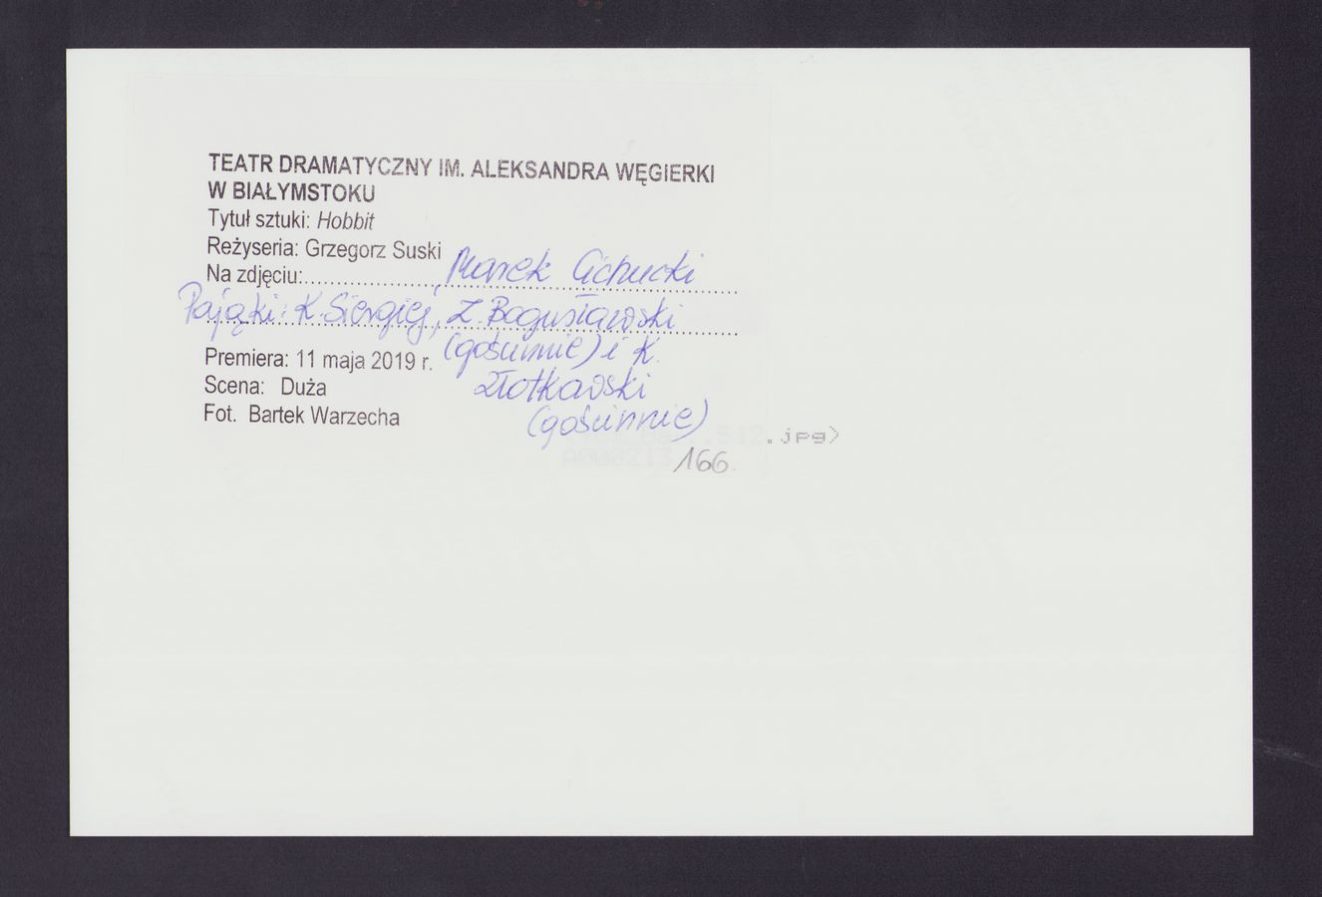 TEATR DRAMATYCZNY IM. ALEKSANDRA WĘGIERKI
W BIAŁYMSTOKU
Tytuł sztuki: Hobbit
Reżyseria: Grzegorz Suski
Na zdjęciu: Marek Cichucki
Pająki: K. Siergiej, Z. Bogusławski
(gościnnie) i K.
Złotkowski
(gościnnie)
Premiera: 11 maja 2019 r.
Scena: Duża
Fot. Bartek Warzecha
.jpg>
166